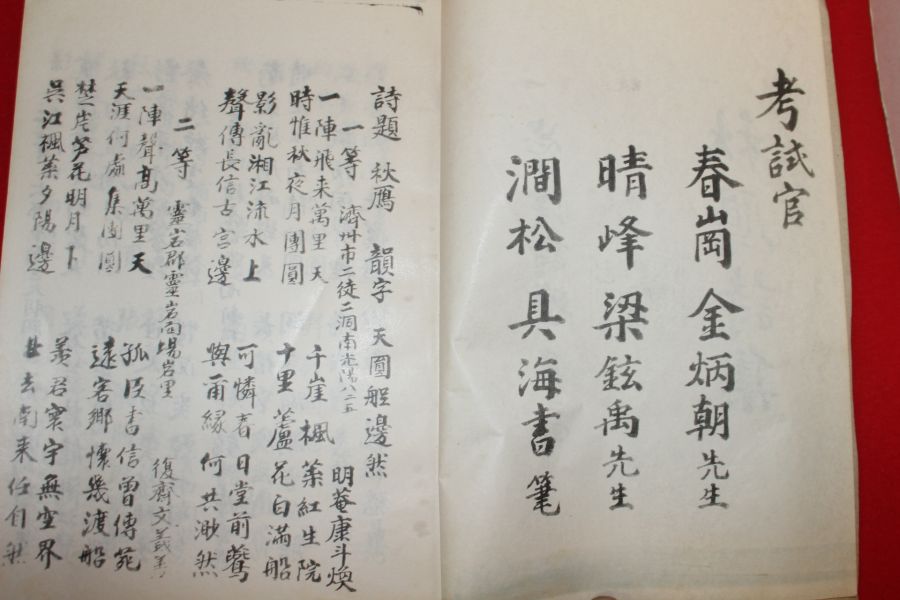 考試官
春崗 金炳朝 先生
晴峰 梁鉉禹 先生
澗松 具海書 筆
詩題 秋鴈 韻字 天圓船邊然
一等 濟州市二徒二洞南光陽八二五 明菴康斗煥
一陣飛来萬里天 千崖楓葉紅生院
時惟秋夜月團圓 十里蘆花白滿船
影亂湘江流水上 可憐春日堂前鷰
聲傳長信古宮邊 與甭緣何共渺然
二等 靈岩郡靈岩面場岩里 復齊文義
一陣聲髙萬里天 孤臣書信曾傳苑
天涯何處集團圓 遠客鄉懷幾渡船
楚岸芦花明月下 羨君寰宇無空界
吳江楓葉夕陽邊 北去南来任自然